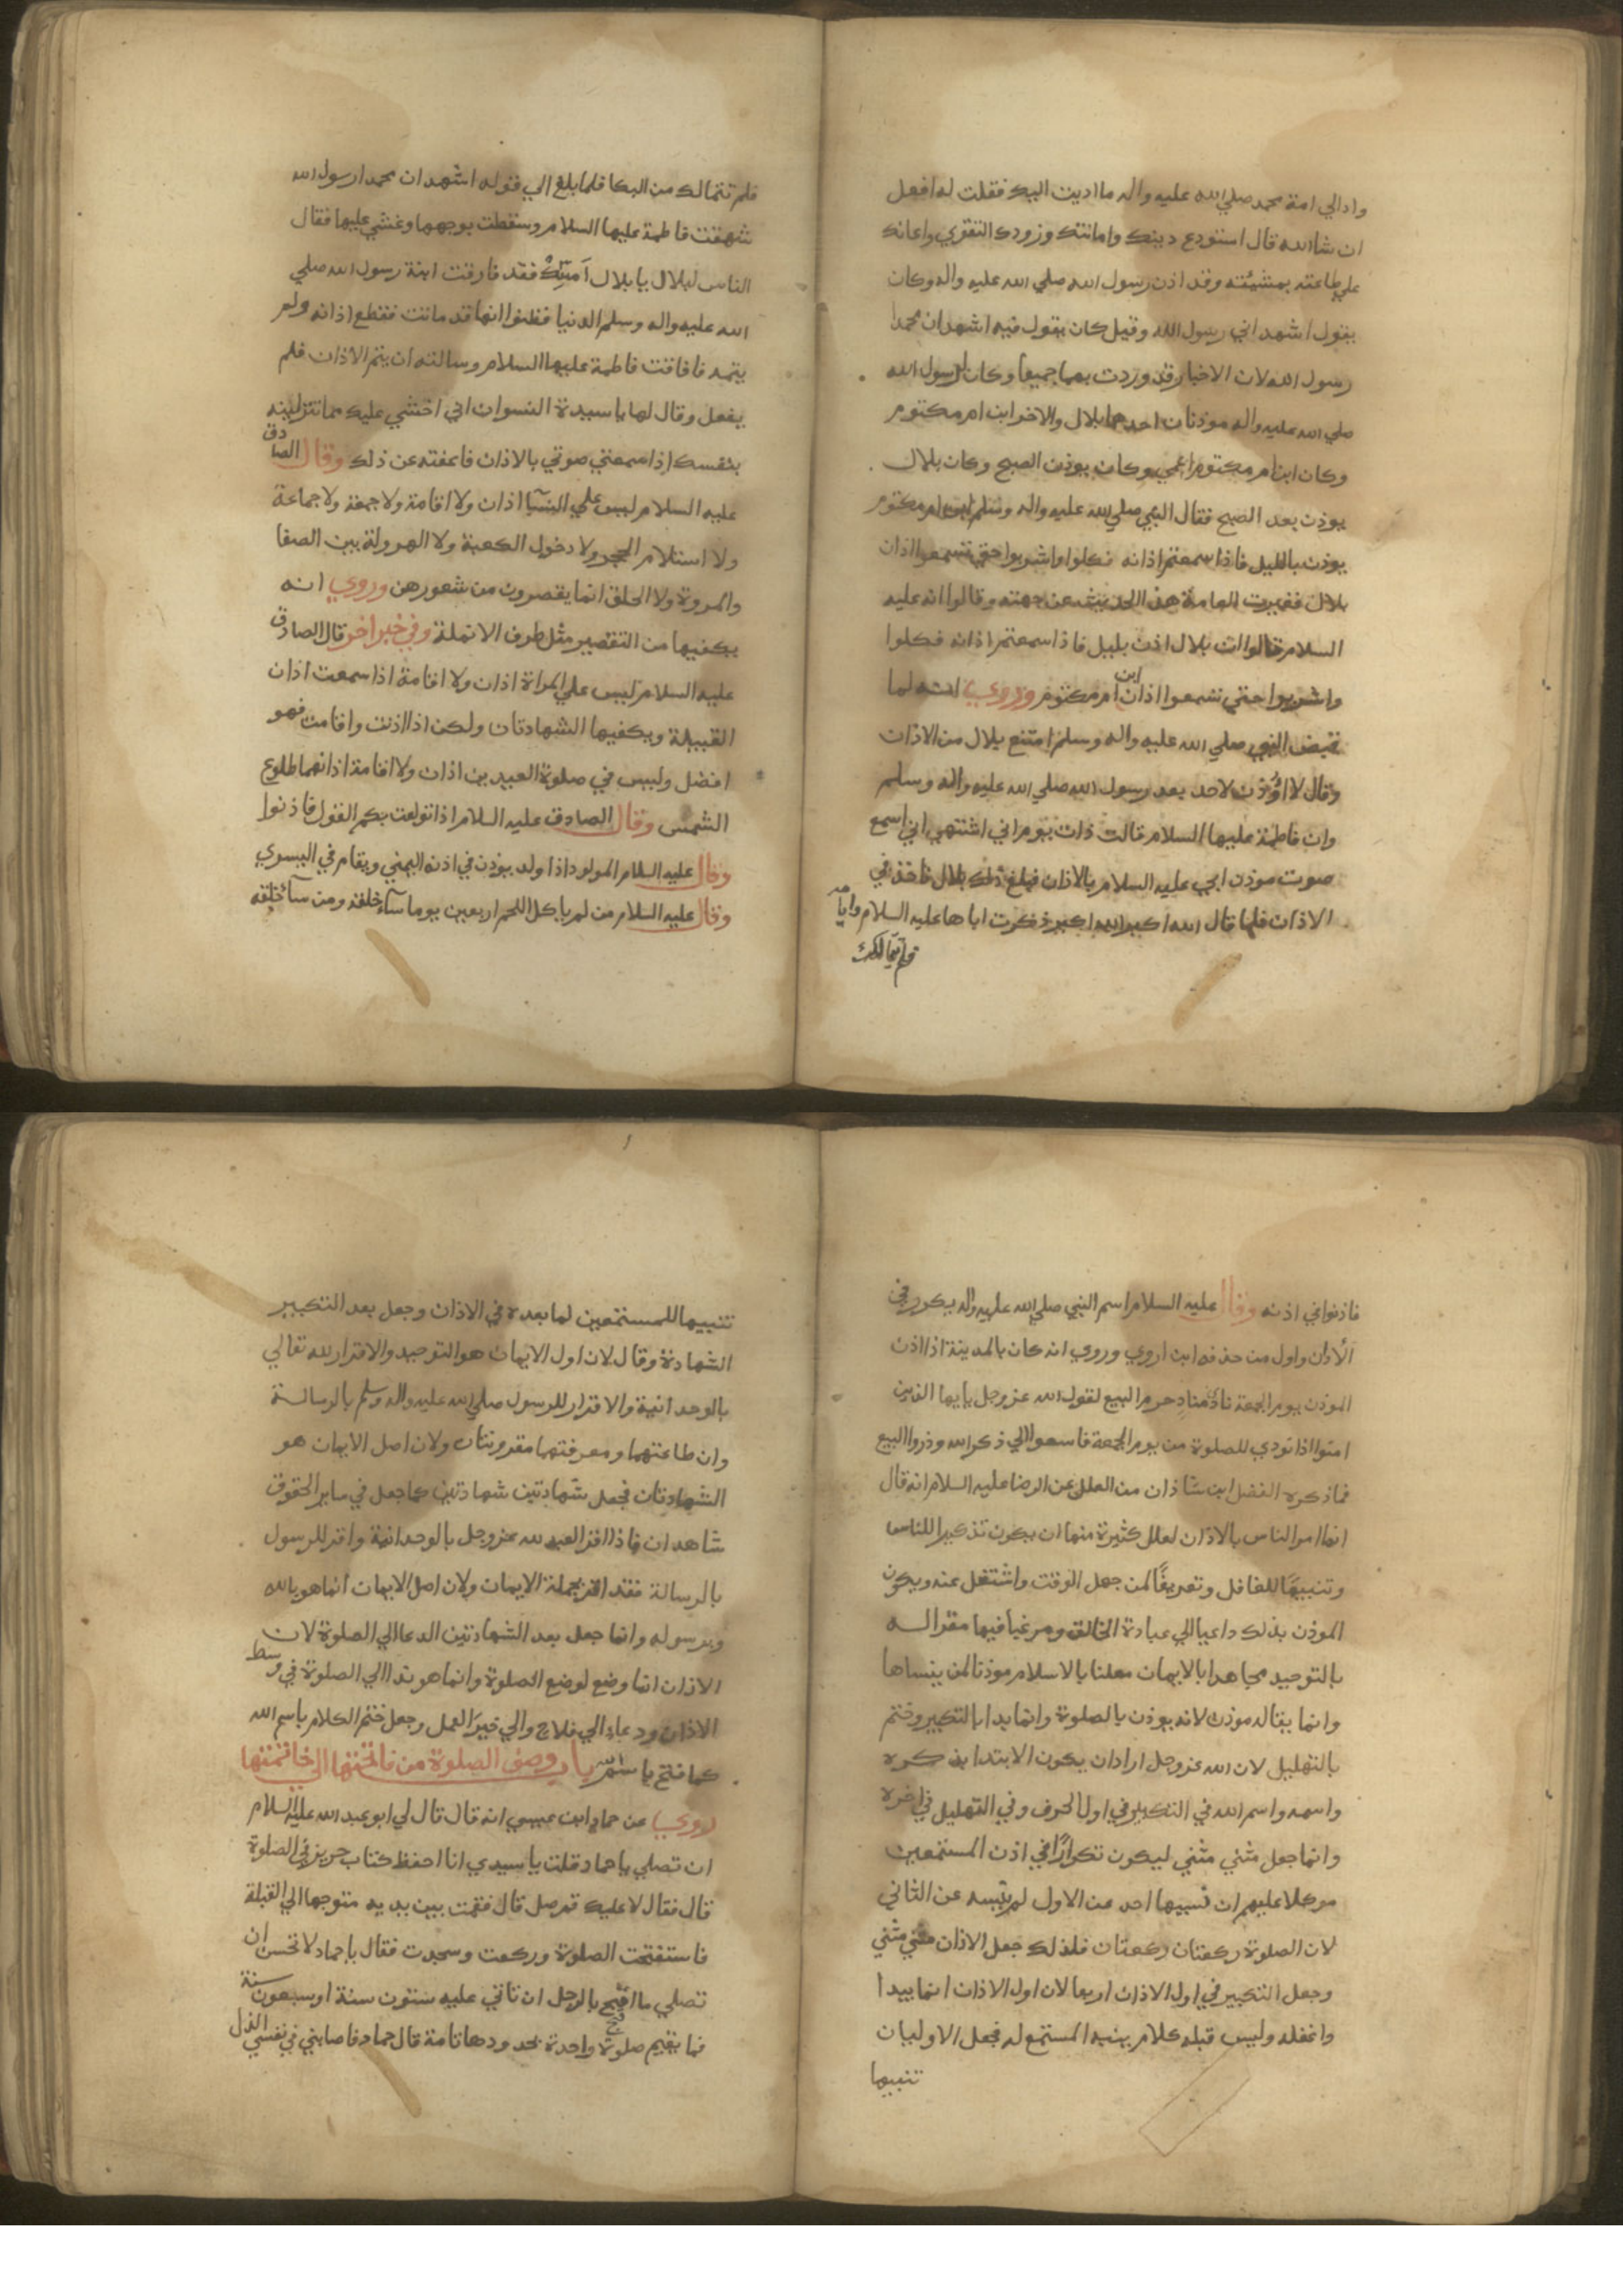 وادالي امة محمد صلي الله عليه واله ما اديت اليك فقلت له افعل
ان شاالله قال استودع دينك وامانتك وزودك التقوي واعانك
علي طاعته بمشيئته وقد اذن رسول الله صلي الله عليه واله وكان
يقول اشهد اني رسول الله وقيل كان يقول فيه اشهد ان محمدا
رسول الله لان الاخبار قد وردت بهما جميعا وكان لرسول الله
صلي الله عليه واله موذنان احدهما بلال والاخر ابن ام مكتوم
وكان ابن ام مكتوم اعمي وكان يوذن الصبح وكان بلال
يوذن بعد الصبح فقال النبي صلي الله عليه واله وسلم ابن ام مكتوم
يوذن بالليل فاذا سمعتم اذانه فكلوا واشربوا حتي تسمعوا اذان
بلال فغيرت العامة هذا الحديث عن جهته وقالوا انه عليه
السلام قالوا ان بلال اذن بليل فاذا سمعتم اذانه فكلوا
واشربوا حتي تسمعوا اذان ابن ام مكتوم وروي انه لما
قبض النبي صلي الله عليه واله وسلم امتنع بلال من الاذان
وقال لا اوذن لاحد بعد رسول الله صلي الله عليه واله وسلم
وان فاطمة عليها السلام قالت ذات يوم اني اشتهي اني اسمع
صوت موذن ابي عليه السلام بالاذان فبلغ ذلك بلال فاخذ في
الاذان فلما قال الله اكبر الله اكبر ذكرت اباها عليه السلام وايامه
فلم تتمالك
فلم تتمالك من البكا فلما بلغ الي قوله اشهد ان محمدا رسول الله
شهقت فاطمة عليها السلام وسقطت بوجهها وغشي عليها فقال
الناس لبلال يا بلال امسك فقد فارقت ابنة رسول الله صلي
الله عليه واله وسلم الدنيا فظنوا انها قد ماتت فقطع اذانه ولم
يتمه فافاقت فاطمة عليها السلام وسالته ان يتم الاذان فلم
يفعل وقال لها يا سيدة النسوان اني اخشي عليك مما تنزلينه
بنفسك اذا سمعتي صوتي بالاذان فاعفته عن ذلك وقال الصادق
عليه السلام ليس علي النسآ اذان ولا اقامة ولا جمعة ولا جماعة
ولا استلام الحجر ولا دخول الكعبة ولا الهرولة بين الصفا
والمروة ولا الحلق انما يقصرون من شعورهن وروي انه
يكفيها من التقصير مثل طرف الانملة وفي خبر اخر قال الصادق
عليه السلام ليس علي المراة اذان ولا اقامة اذا سمعت اذان
القبيلة ويكفيها الشهادتان ولكن اذا اذنت واقامت فهو
افضل وليس في صلوة العيدين اذان ولا اقامة اذانهما طلوع
الشمس وقال الصادق عليه السلام اذا تولعت بكم الغول فاذنوا
وقال عليه السلام المولود اذا ولد يوذن في اذنه اليمني ويقام في اليسري
وقال عليه السلام من لم ياكل اللحم اربعين يوما سآء خلقه ومن سآء خلقه
فاذنوا في اذنه وقال عليه السلام اسم النبي صلي الله عليه واله يكرر في
الأذان واول من حذفه ابن اروي وروي انه كان بالمدينة اذا اذن
الموذن يوم الجمعة نادي منادٍ حرم البيع لقول الله عز وجل يا يها الذين
امنوا اذا نودي للصلوة من يوم الجمعة فاسعوا الي ذكر الله وذروا البيع
فما ذكره الفضل ابن شاذان من العلل عن الرضا عليه السلام انه قال
انما امر الناس بالاذان لعلل كثيرة منها ان يكون تذكيرا للناس
وتنبيهًا للغافل وتعريفًا لمن جهل الوقت واشتغل عنه ويكون
الموذن بذلك داعيا الي عبادة الخالق ومرغبا فيها مقرا له
بالتوحيد مجاهدا بالايمان معلنا بالاسلام موذنا لمن ينساها
وانما يقال له موذن لانه يوذن بالصلوة وانما بدا بالتكبير وختم
بالتهليل لان الله عز وجل اراد ان يكون الابتدا بذكره
واسمه واسم الله في التكبير في اول الحرف وفي التهليل في اخره
وانما جعل مثني مثني ليكون تكرارًا في اذن المستمعين
موكلا عليهم ان نسيها احد عن الاول لم ينسه عن الثاني
لان الصلوة ركعتان ركعتان فلذلك جعل الاذان مثني مثني
وجعل التكبير في اول الاذان اربعا لان اول الاذان انما يبدا
واغفله وليس قبله كلام ينبه المستمع له فجعل الاوليان
تنبيها
تنبيها للمستمعين لما بعده في الاذان وجعل بعد التكبير
الشهادة وقال لان اول الايمان هو التوحيد والاقرار لله تعالي
بالوحدانية والاقرار للرسول صلي الله عليه واله وسلم بالرسالة
وان طاعتهما ومعرفتهما مقرونتان ولان اصل الايمان هو
الشهادتان فجعل شهادتين شهادتين كما جعل في ساير الحقوق
شاهدان فاذا اقر العبد لله عز وجل بالوحدانية واقر للرسول
بالرسالة فقد اقر بجملة الايمان ولان اصل الايمان انما هو بالله
وبرسوله وانما جعل بعد الشهادتين الدعا الي الصلوة لان
الاذان انما وضع لوضع الصلوة وانما هو ندا الي الصلوة في وسط
الاذان ودعاء الي فلاح والي خير العمل وجعل ختم الكلام باسم الله
كما فتح باسم الله باب وصف الصلوة من فاتحتها الي خاتمتها
روي عن حماد ابن عيسي انه قال قال لي ابو عبد الله عليه السلام
ان تصلي يا حماد قلت يا سيدي انا احفظ كتاب حريز في الصلوة
قال فقال لا عليك قم صل قال فقمت بين يديه متوجها الي القبلة
فاستفتحت الصلوة وركعت وسجدت فقال يا حماد لا تحسن ان
تصلي ما اقبح بالرجل ان تاتي عليه ستون سنة او سبعون سنة
فما يقيم صلوة واحدة بحدودها تامة قال حماد فاصابني في نفسي الذل